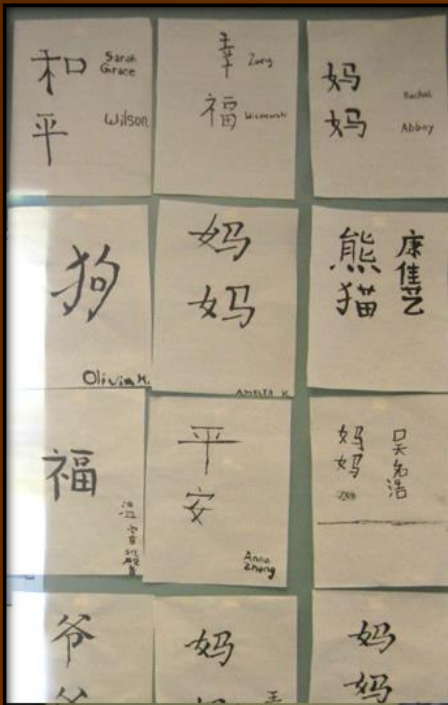 和
平
Sarah
Grace
Wilson
幸
福
Zoey
妈
妈
Rachel
Abbey
狗
Olivia H.
妈
妈
AMELIA K
熊
猫
康
佳
艺
福
平
安
Anna
Zhong
妈
妈
吴
名
浩
爷
爷
妈
妈
王
妈
妈